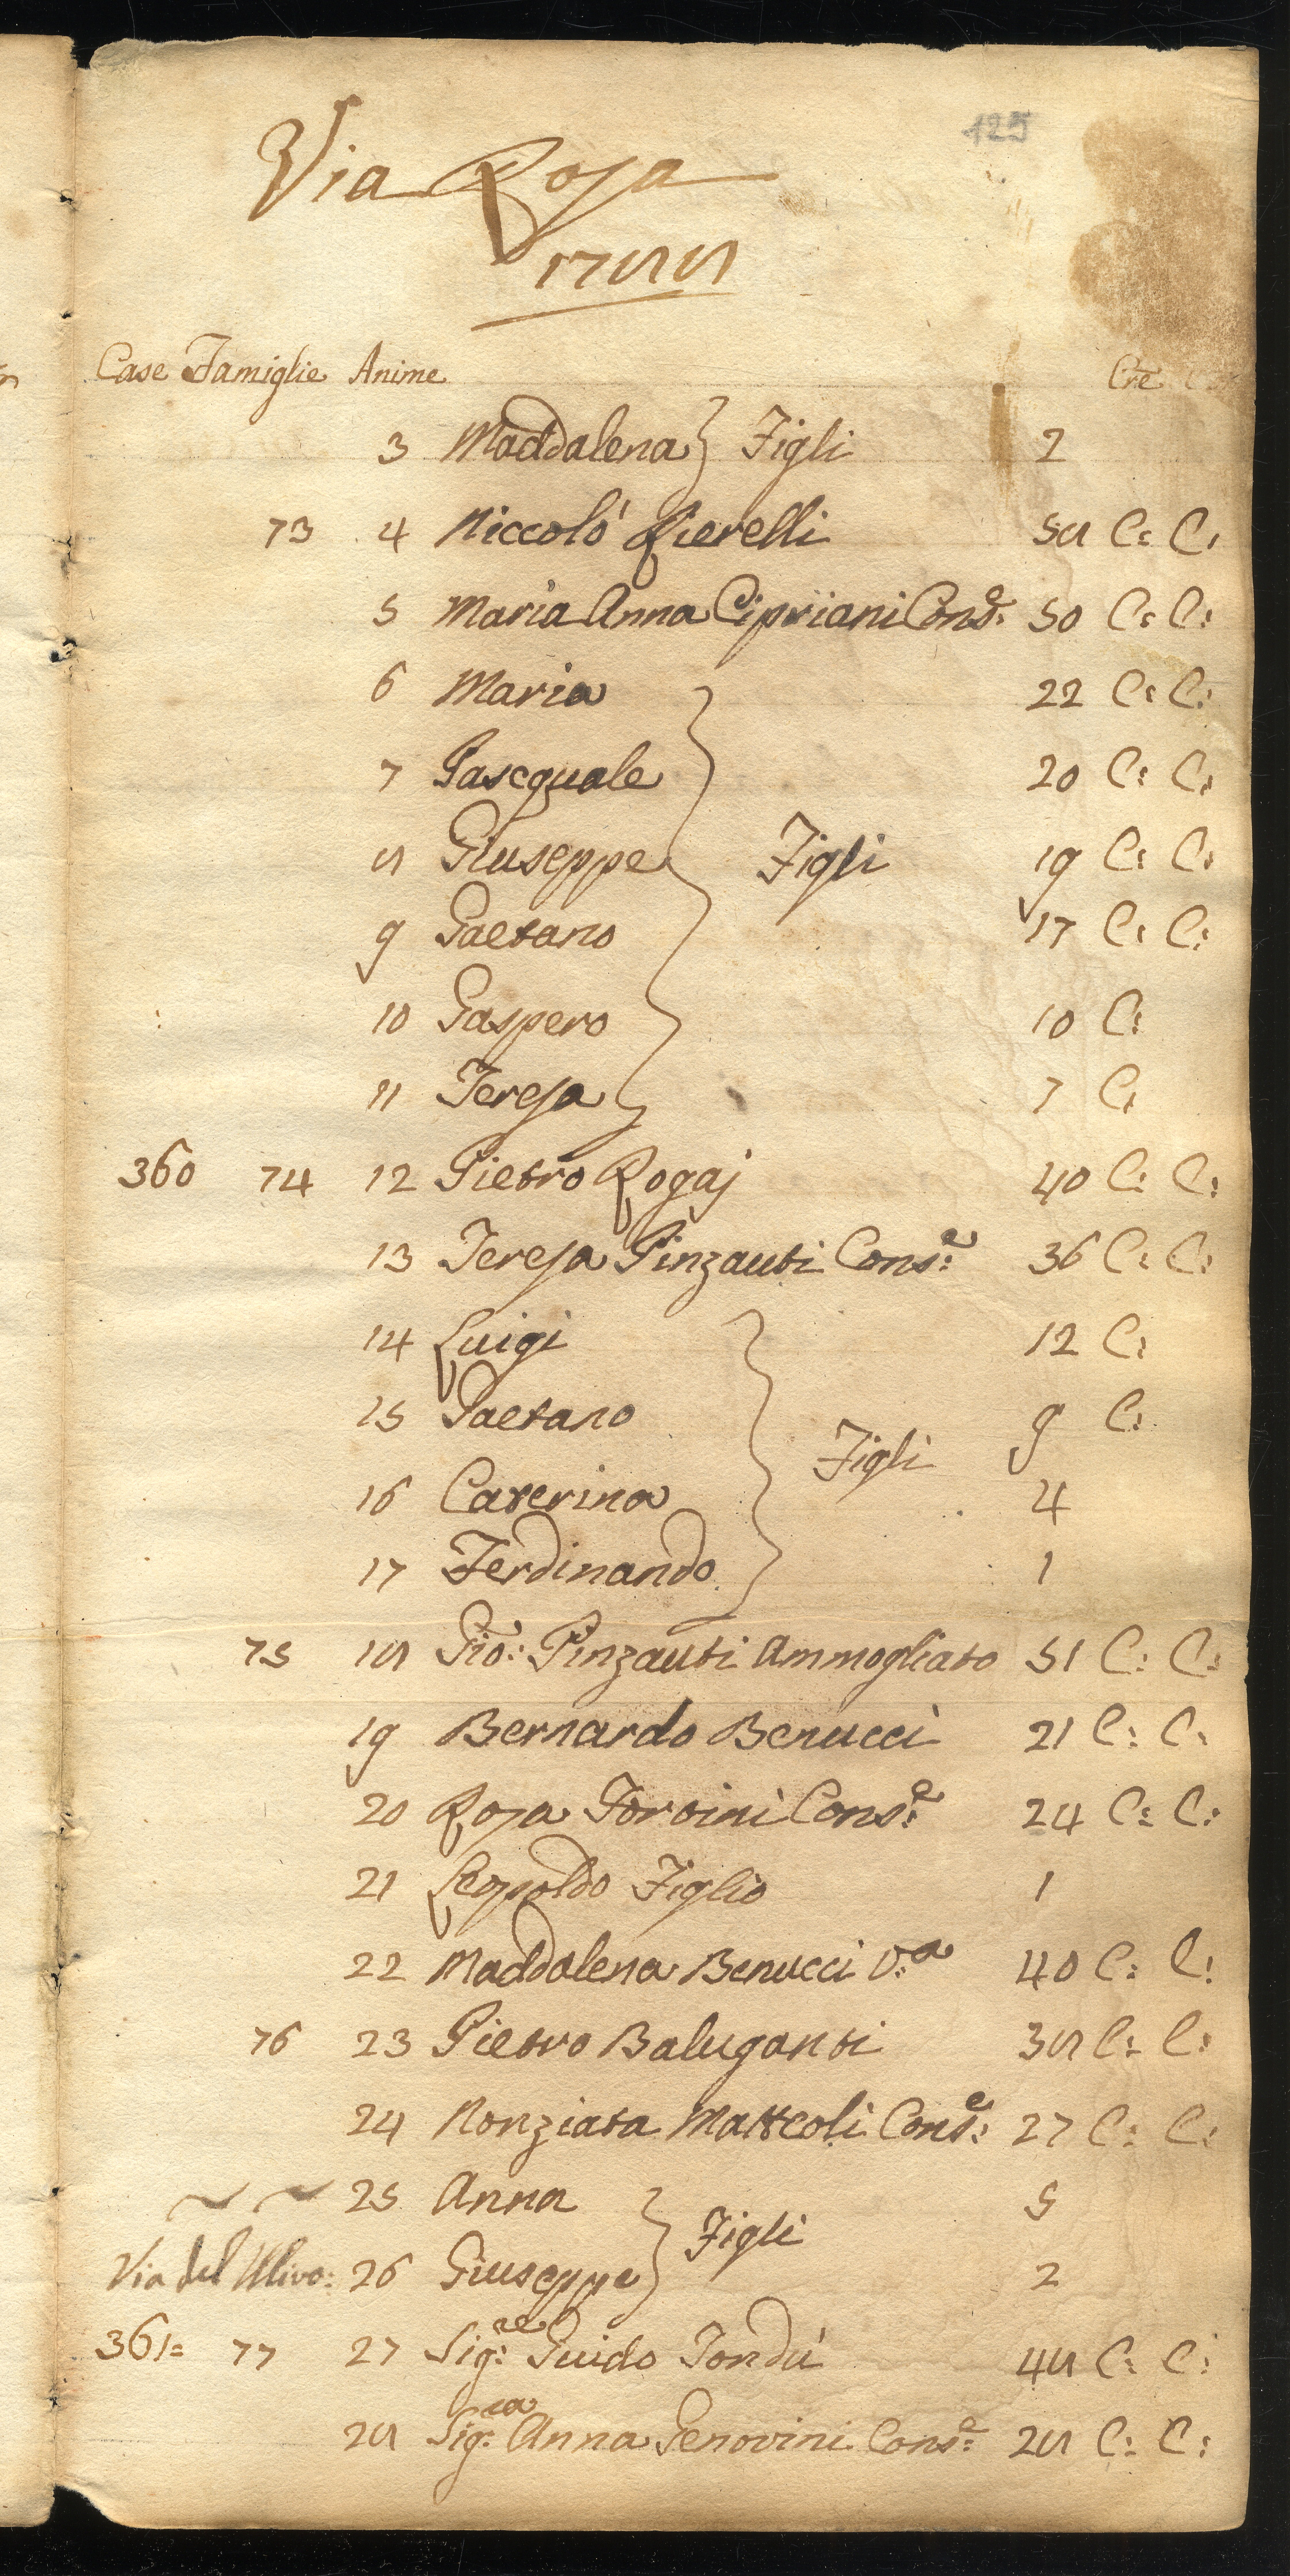 125
Via Rosa
1788
Case Famiglie Anime Cre
3 Maddalena } Figli 2
73 4 Niccolò Fierelli 58 C: C:
5 Maria Anna Cipriani Cons.e 50 C: C:
6 Maria 22 C: C:
7 Pasequale 20 C: C:
8 Giuseppe Figli 19 C: C:
9 Gaetano 17 C: C:
10 Gaspero 10 C:
11 Teresa 7 C:
360 74 12 Pietro Rogaj 40 C: C:
13 Teresa Pinzauti Cons:e 36 C: C:
14 Luigi 12 C:
15 Gaetano 9 C:
Figli
16 Caterina 4
17 Ferdinando 1
75 18 Gio: Pinzauti Ammogliato 51 C: C:
19 Bernardo Benucci 21 C: C:
20 Rosa Torvini Cons:e 24 C: C:
21 Leopoldo Figlio 1
22 Maddalena Benucci V:a 40 C: C:
76 23 Pietro Baluganti 38 C: C:
24 Nonziata Matteoli Cons:e 27 C: C:
25 Anna 5
Figli
Via del Ulivo: 26 Giuseppe 2
361= 77 27 Sig:re Guido Tondù 48 C: C:
28 Sig:ra Anna Genovini Cons:e 28 C: C: